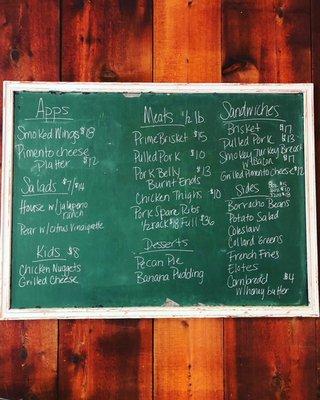 Apps
Smoked Wings $18
Pimento cheese
Platter $12
Salads $7/$14
House w/ jalapeno
ranch
Pear w/ citrus vinaigrette
Kids $8
Chicken Nuggets
Grilled Cheese
Meats 1/2 lb.
Prime Brisket $15
Pulled Pork $10
Pork Belly $13
Burnt Ends
Chicken Thighs $10
Pork Spare Ribs
1/2 rack $18 Full $36
Desserts
Pecan Pie
Banana Pudding
Sandwiches
Brisket $17
Pulled Pork $13
Smoky Turkey Breast
w/ Bacon $17
Grilled Pimento Cheese $12
Sides
Borracho Beans
Potato Salad
Coleslaw
Collard Greens
French Fries
Elotes
Cornbread $4
w/ honey butter